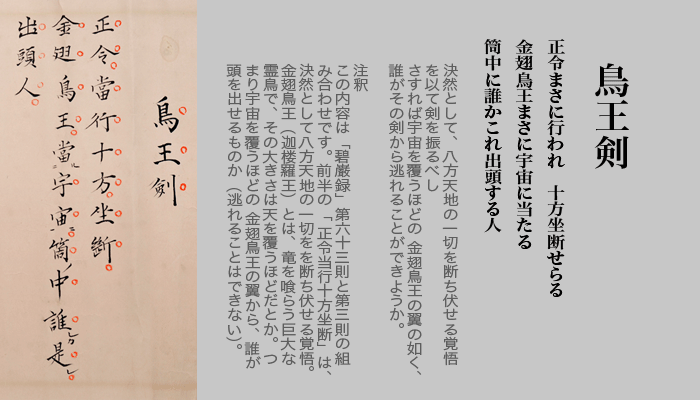 鳥王剣
正令まさに行われ　十方坐断せらる
金翅鳥王まさに宇宙に当たる
箇中に誰かこれ出頭する人
決然として、八方天地の一切をを断ち伏せる覚悟
を以て剣を振るべし
さすれば宇宙を覆うほどの 金翅鳥王の翼の如く、
誰がその剣から逃れることができようか。
注釈
この内容は「碧巌録」第六十三則と第三則の組
み合わせです。前半の「正令当行十方坐断」は、
決然として八方天地の一切を断ち伏せる覚悟。
金翅鳥王（迦楼羅王）とは、竜を喰らう巨大な
霊鳥で、その大きさは天を覆うほどだとか。つ
まり宇宙を覆うほどの 金翅鳥王の翼から、誰が
頭を出せるものか（逃れることはできない）。
鳥王劍
正令當行十方坐斷
金翅鳥王當宇宙箇中誰是
出頭人